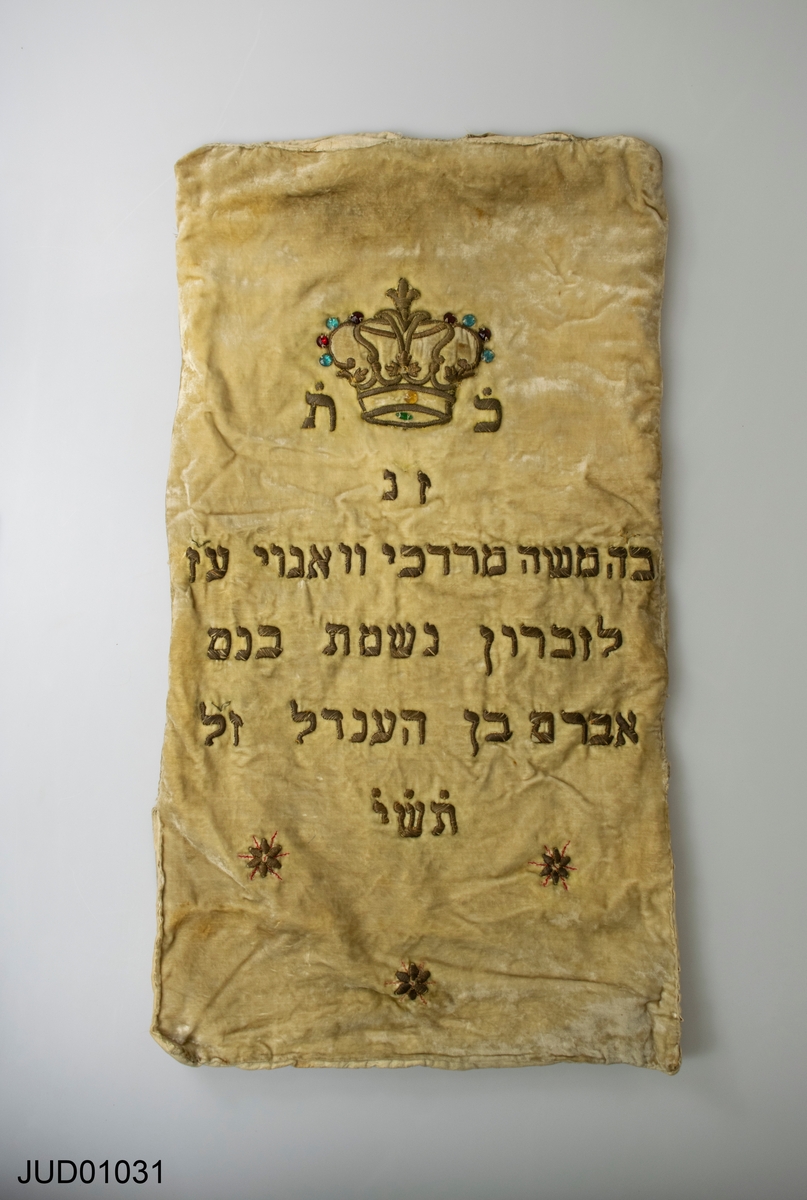 כׄ תׄ
ז נ
בהמשה מרדכי וואגוי עז
לזכרון נשמת בנם
אברם בן הענדל זל
תׄשׄיׄ
JUD01031